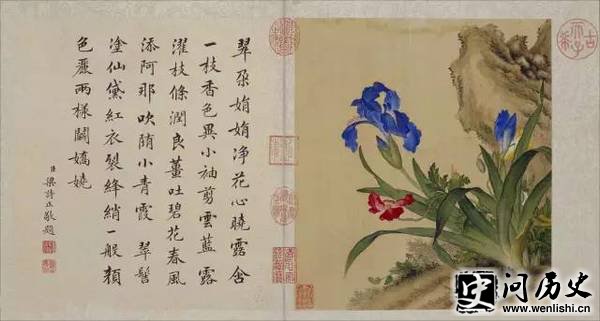 翠朶娟娟净花心曉露含
一枝香色異小袖剪雲藍露
濯枝條潤良薑吐碧花春風
添阿那吹墮小青霞 翠髻
塗仙黛紅衣裂絳綃一般顏
色麗兩樣鬭嬌嬈
臣梁詩正敬題
古希天子
史问历史
www.wenlishi.cn